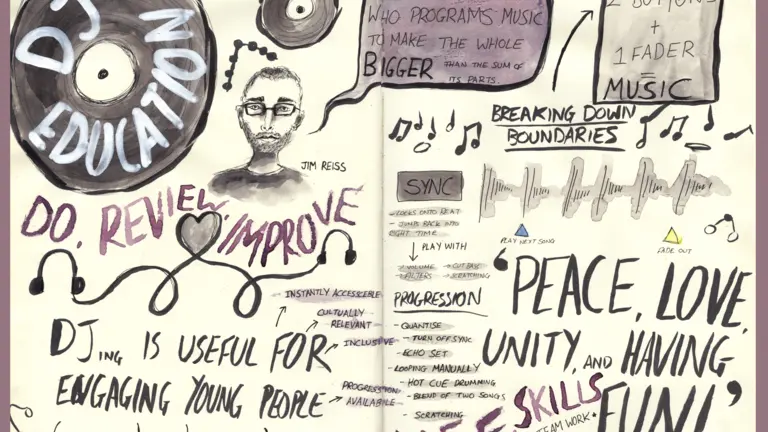 DJ
EDUCATION
WHO PROGRAMS MUSIC
TO MAKE THE WHOLE
BIGGER THAN THE SUM OF
ITS PARTS.
JIM REISS
DO, REVIEW, IMPROVE
DJing IS USEFUL FOR
ENGAGING YOUNG PEOPLE
INSTANTLY ACCESSIBLE
CULTURALLY
RELEVANT
INCLUSIVE
PROGRESSION
AVAILABLE
2 BUTTONS
+
1 FADER
=
MUSIC
BREAKING DOWN
BOUNDARIES
SYNC
- LOCKS ONTO BEAT
- JUMPS BACK INTO
RIGHT TIME
PLAY WITH
VOLUME
CUT BASS
FILTERS
SCRATCHING
PLAY NEXT SONG
FADE OUT
PROGRESSION
- QUANTISE
- TURN OFF SYNC
- ECHO SET
- LOOPING MANUALLY
- HOT CUE DRUMMING
- BLEND OF TWO SONGS
- SCRATCHING
'PEACE, LOVE,
UNITY, AND HAVING
FUN!'
SKILLS
TEAM WORK